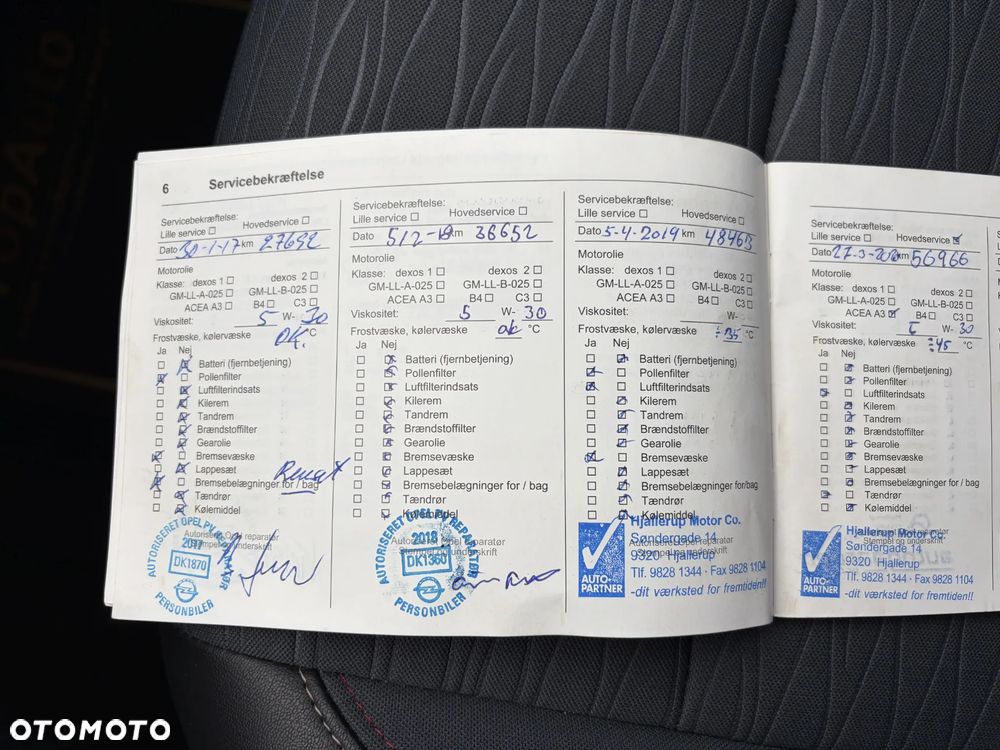 6 Servicebekræftelse
Servicebekræftelse:
Lille service Hovedservice
Dato 30-1-17 km 27692
Motorolie
Klasse: dexos 1 dexos 2
GM-LL-A-025 GM-LL-B-025
ACEA A3 B4 C3
Viskositet: 5 W- 30
Frostvæske, kølervæske OK. °C
Ja Nej
Batteri (fjernbetjening)
Pollenfilter
Luftfilterindsats
Kilerem
Tandrem
Brændstoffilter
Gearolie
Bremsevæske
Lappesæt
Bremsebelægninger for / bag
Tændrør
Kølemiddel
Autoriseret Opel reparatør
Stempel og underskrift
AUTORISERET OPEL
2017
DK1870
PERSONBILER
Servicebekræftelse:
Lille service Hovedservice
Dato 5/2-18 km 38652
Motorolie
Klasse: dexos 1 dexos 2
GM-LL-A-025 GM-LL-B-025
ACEA A3 B4 C3
Viskositet: 5 W- 30
Frostvæske, kølervæske ok °C
Ja Nej
Batteri (fjernbetjening)
Pollenfilter
Luftfilterindsats
Kilerem
Tandrem
Brændstoffilter
Gearolie
Bremsevæske
Lappesæt
Bremsebelægninger for / bag
Tændrør
Kølemiddel
Stempel og underskrift
AUTORISERET OPEL PV REPARATØR
2018
DK1360
PERSONBILER
Servicebekræftelse:
Lille service Hovedservice
Dato 5-4-2019 km 48463
Motorolie
Klasse: dexos 1 dexos 2
GM-LL-A-025 GM-LL-B-025
ACEA A3 B4 C3
Viskositet: W-
Frostvæske, kølervæske ÷35 °C
Ja Nej
Batteri (fjernbetjening)
Pollenfilter
Luftfilterindsats
Kilerem
Tandrem
Brændstoffilter
Gearolie
Bremsevæske
Lappesæt
Bremsebelægninger for/bag
Tændrør
Kølemiddel
Autoriseret Opel reparatør
Stempel og underskrift
AUTO-
PARTNER
Hjallerup Motor Co.
Søndergade 14
9320 Hjallerup
Tlf. 9828 1344 · Fax 9828 1104
-dit værksted for fremtiden!!
Servicebekræftelse:
Lille service Hovedservice
Dato km 56966
Motorolie
Klasse: dexos 1 dexos 2
GM-LL-A-025 GM-LL-B-025
ACEA A3 B4 C3
Viskositet: W- 30
Frostvæske, kølervæske ÷45 °C
Ja Nej
Batteri (fjernbetjening)
Pollenfilter
Luftfilterindsats
Kilerem
Tandrem
Brændstoffilter
Gearolie
Bremsevæske
Lappesæt
Bremsebelægninger for / bag
Tændrør
Kølemiddel
Autoriseret Opel reparatør
Stempel og underskrift
AUTO-
PARTNER
Hjallerup Motor Co.
Søndergade 14
9320 Hjallerup
Tlf. 9828 1344 · Fax 9828 1104
-dit værksted for fremtiden!!
OTOMOTO